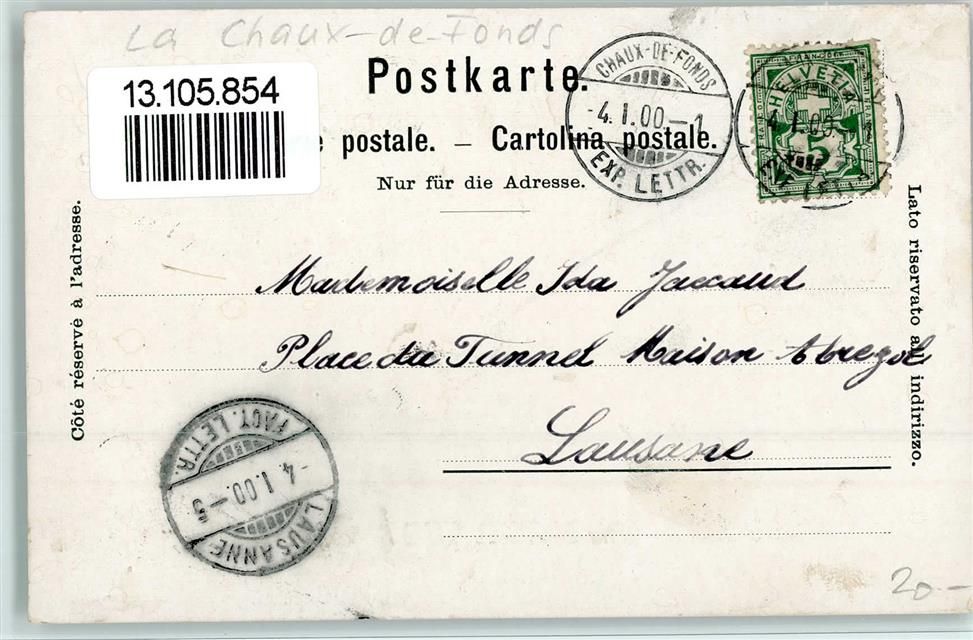 La Chaux-de-Fonds
13.105.854
Postkarte.
e postale. – Cartolina postale.
Nur für die Adresse.
CHAUX-DE-FONDS
-4. I. 00-1
EXP. LETTR.
HELVETIA
5
Côté réservé à l'adresse.
Lato riservato all' indirizzo.
Mademoiselle Ida Jaccaud
Place du Tunnel Maison
Lausane
FACT. LETTR.
-4. I. 00.-5
LAUSANNE
20-